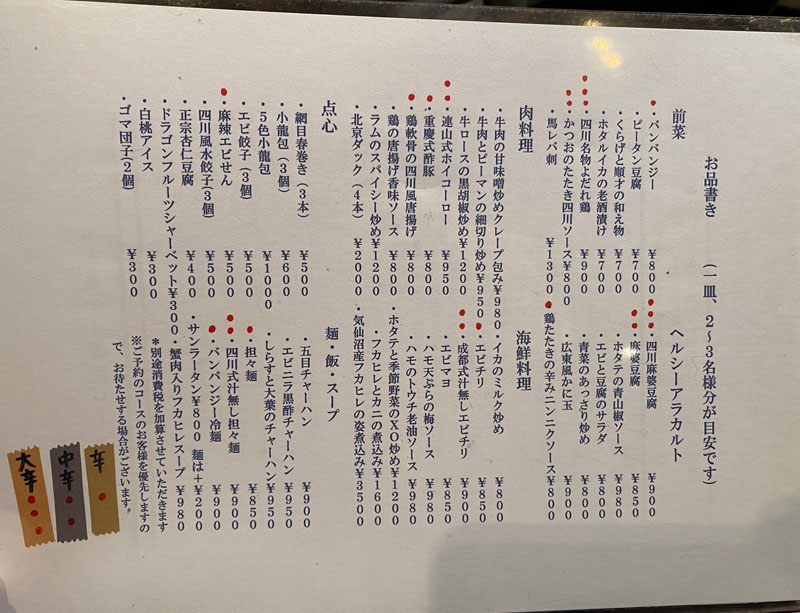 お品書き　（一皿、２～３名様分が目安です）
前菜
・バンバンジー　￥８００
・ピータン豆腐　￥７００
・くらげと順才の和え物　￥７００
・ホタルイカの老酒漬け　￥７００
・四川名物よだれ鶏　￥９００
・かつおのたたき四川ソース￥８００
・馬レバ刺　￥１３００
肉料理
・牛肉の甘味噌炒めクレープ包み￥９８０
・牛肉とピーマンの細切り炒め￥９５０
・牛ロースの黒胡椒炒め￥１２００
・連山式ホイコーロー　￥９５０
・重慶式酢豚　￥８００
・鶏軟骨の四川風唐揚げ　￥８００
・鶏の唐揚げ香味ソース　￥８００
・ラムのスパイシー炒め￥１２００
・北京ダック（４本）　￥２０００
点心
・網目春巻き（３本）　￥５００
・小龍包（３個）　￥６００
・５色小龍包　￥１０００
・エビ餃子（３個）　￥５００
・麻辣エビせん　￥５００
・四川風水餃子（３個）　￥５００
・正宗杏仁豆腐　￥４００
・ドラゴンフルーツシャーベット￥３００
・白桃アイス　￥３００
・ゴマ団子（２個）　￥３００
ヘルシーアラカルト
・四川麻婆豆腐　￥９００
・麻婆豆腐　￥８５０
・ホタテの青山椒ソース　￥９８０
・エビと豆腐のサラダ　￥８００
・青菜のあっさり炒め　￥８００
・広東風かに玉　￥９００
・鶏たたきの辛みニンニクソース￥８００
海鮮料理
・イカのミルク炒め　￥８００
・エビチリ　￥８５０
・成都式汁無しエビチリ　￥９００
・エビマヨ　￥８５０
・ハモ天ぷらの梅ソース　￥９８０
・ハモのトウチ老油ソース　￥９８０
・ホタテと季節野菜のＸＯ炒め￥１２００
・フカヒレとカニの煮込み￥１６００
・気仙沼産フカヒレの姿煮込み￥３５００
麺・飯・スープ
・五目チャーハン　￥９００
・エビニラ黒酢チャーハン　￥９５０
・しらすと大葉のチャーハン￥９５０
・担々麺　￥８５０
・四川式汁無し担々麺　￥９００
・バンバンジー冷麺　￥９００
・サンラータン￥８００　麺は＋￥２００
・蟹肉入りフカヒレスープ　￥９８０
＊別途消費税を加算させていただきます
※ご予約のコースのお客様を優先しますの
で、お待たせする場合がございます。
辛
中辛
大辛